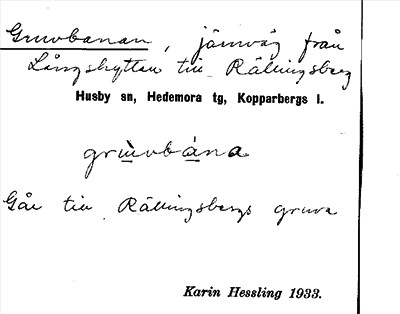 Gruvbanan, järnväg från
Långshyttan till Rällingsberg
Husby sn, Hedemora tg, Kopparbergs l.
grùvbána
Går till Rällingsbergs gruva
Karin Hessling 1933.